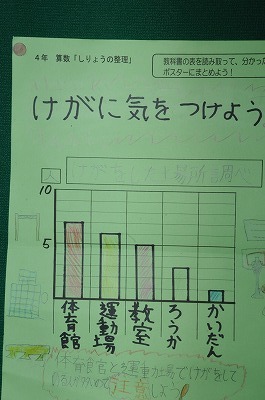 4年 算数「しりょうの整理」
教科書の表を読み取って、分かった
ポスターにまとめよう!
けがに気をつけよう
人
けがをした場所調べ
10
5
0
体育館
運動場
教室
ろうか
かいだん
体育館と運動場でけがをして
注意しよう